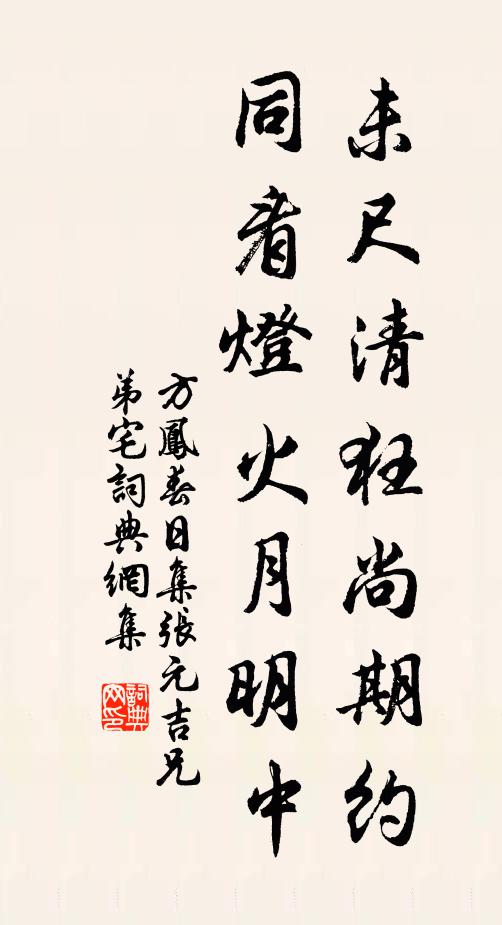 未尺清狂尚期约
同看燈火月明中
方鳳春日集張元吉兄
弟宅詞典網集
詞典网印